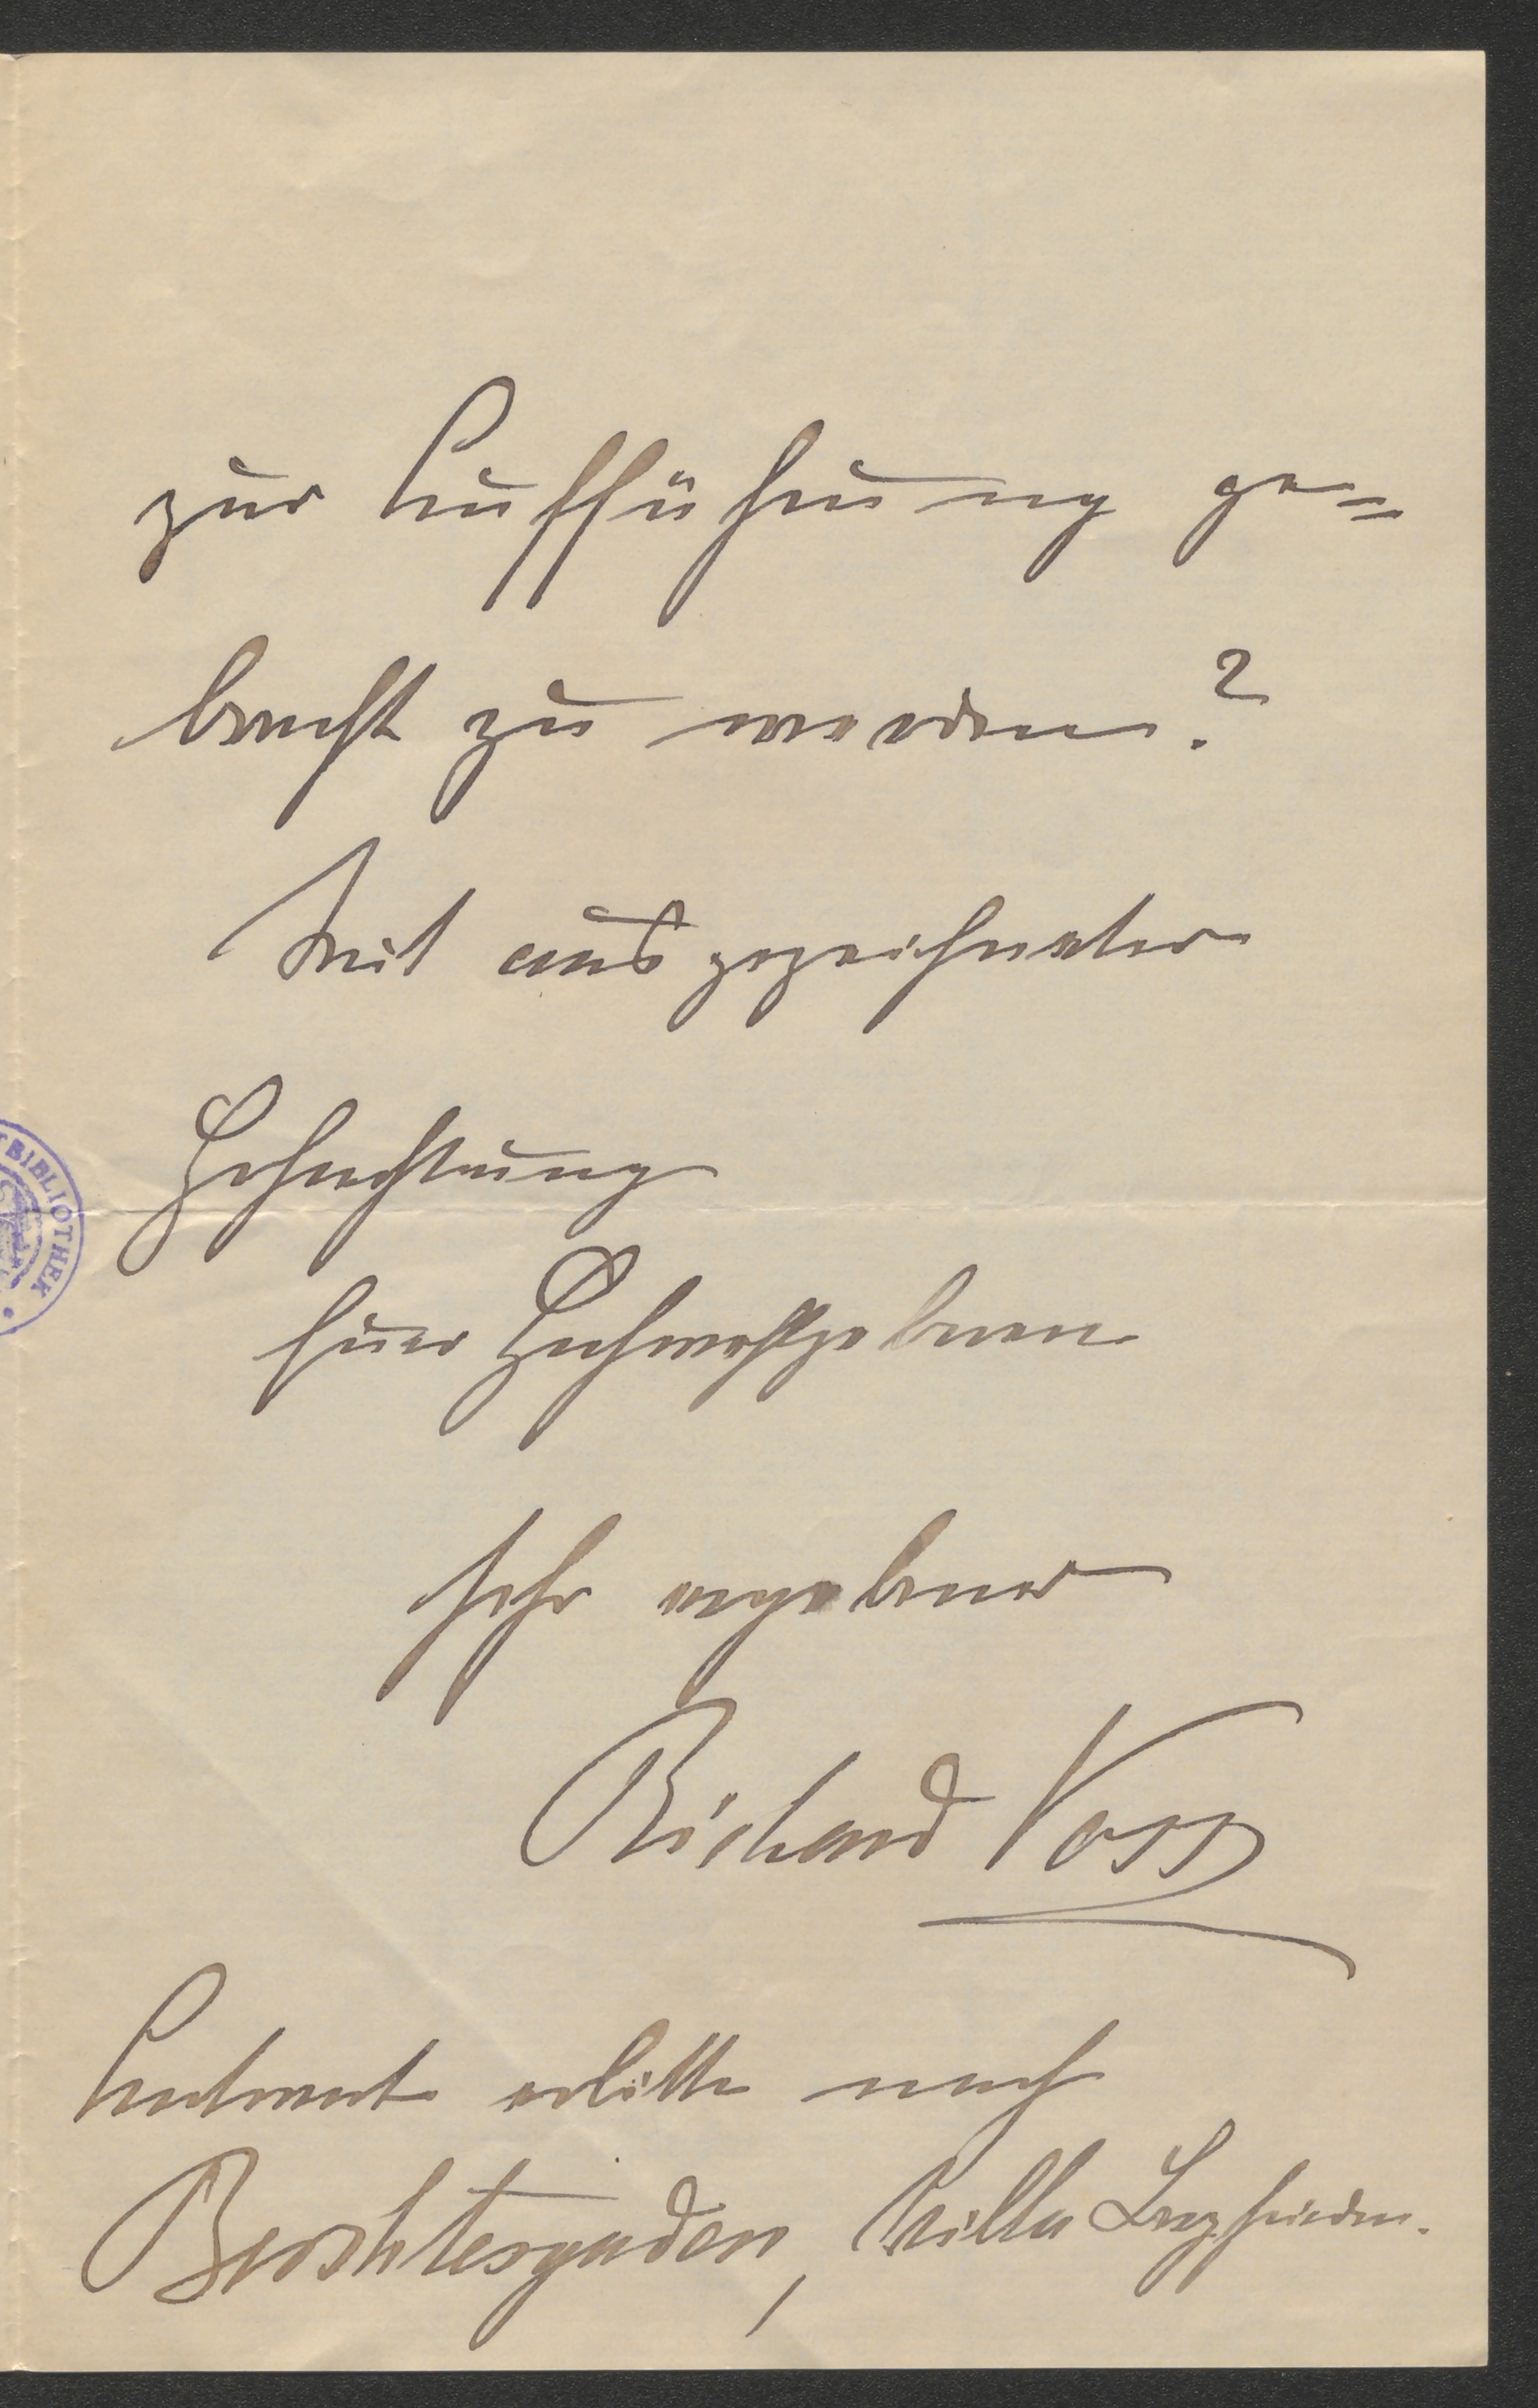 zur Aufführung ge=
bracht zu werden?
Mit ausgezeichneter
Hochachtung
Euer Hochwohlgeboren
sehr ergebener
Richard Voss
Antwort erbitte nach
Berchtesgaden, Villa Bergfrieden.
BIBLIOTHEK